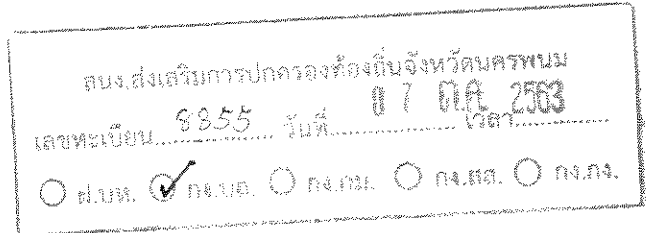 สนง.ส่งเสริมการปกครองท้องถิ่นจังหวัดนครพนม
เลขทะเบียน 8355 วันที่ 0 7 ต.ค. 2563 เวลา
ฝ.บห. กง.บถ. กง.กม. กง.กง.